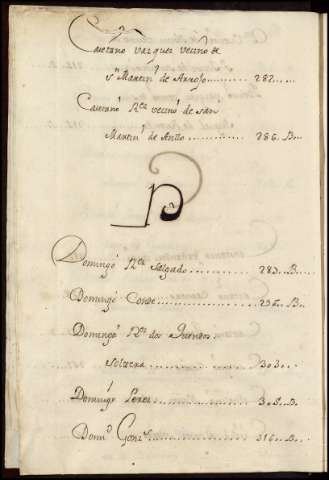 Caetano vazquez vecino de
Sn Martin de Arrojo.......... 282......
Caetano Nez vecino de san
Martin de Anllo .......... 286. B..
D
Domingo Nez Salgado .......... 283..B..
Domingo Conde .......... B..
Domingo Nez dos
Soltera .......... 303..
Domingo Perez .......... B..
Domo Gonz .......... 316..B..